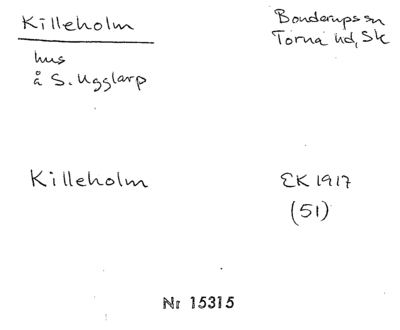 Killeholm
Bonderups sn
Torna hd, Sk
hus
å S. Ugglarp
Killeholm
EK 1917
(51)
Nr 15315